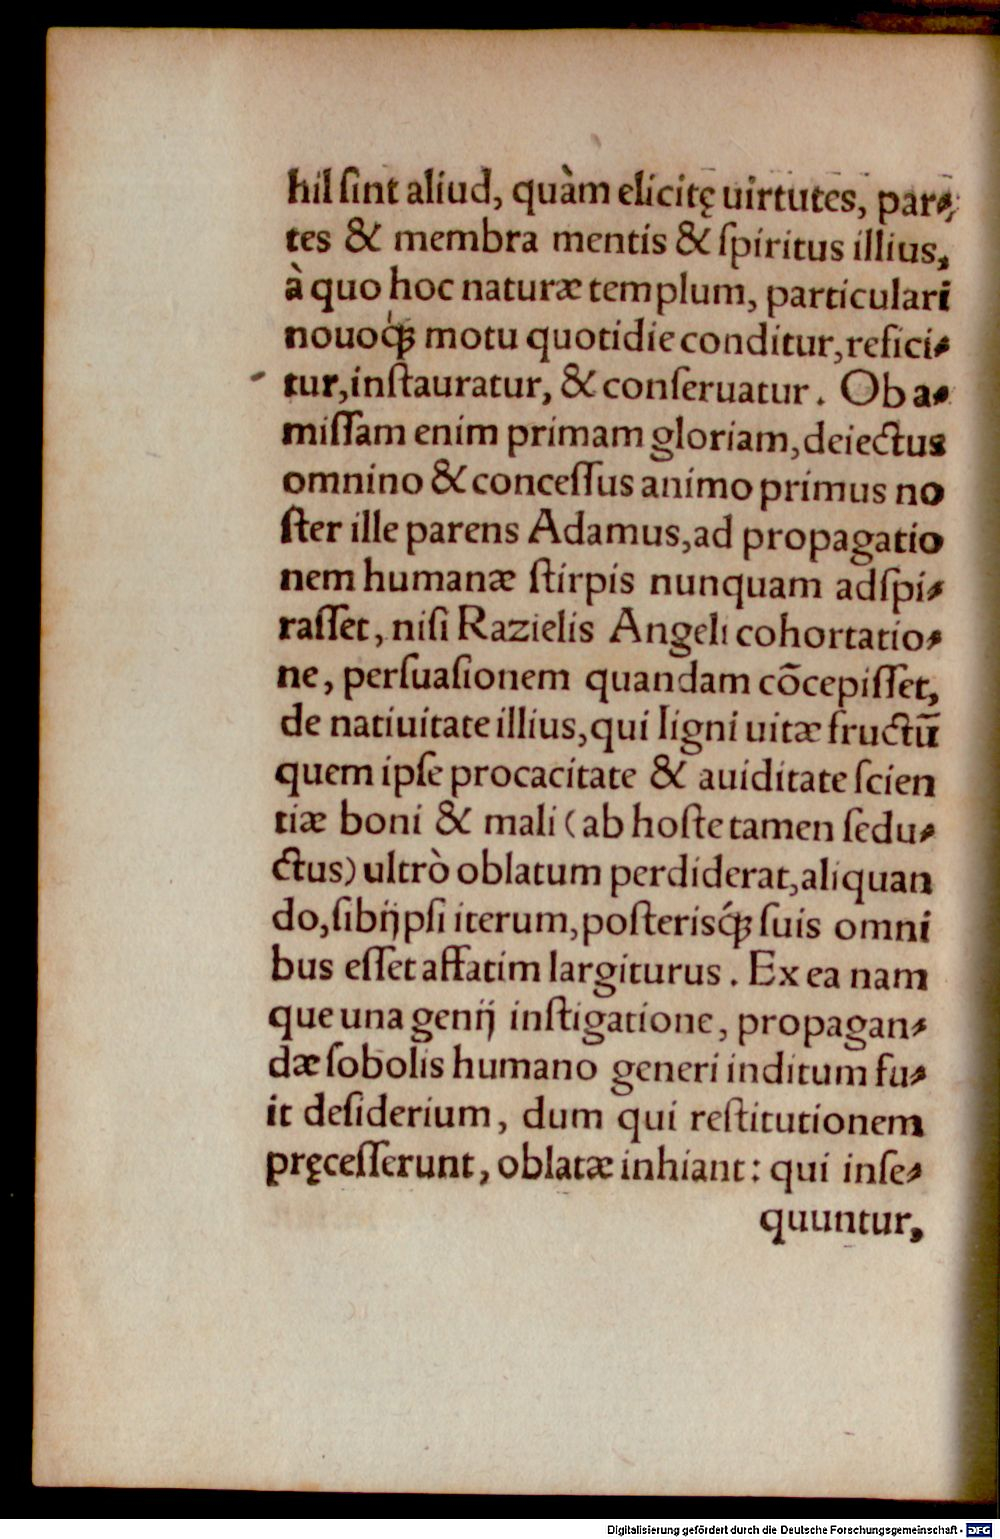 hil ſint aliud, quàm elicitę uirtutes, par⸗
tes & membra mentis & ſpiritus illius,
à quo hoc naturæ templum, particulari
nouoq́ꝫ motu quotidie conditur, refici⸗
tur, inſtauratur, & conſeruatur. Ob a⸗
miſſam enim primam gloriam, deiectus
omnino & conceſſus animo primus no
ſter ille parens Adamus, ad propagatio
nem humanæ ſtirpis nunquam adſpi⸗
raſſet, niſi Razielis Angeli cohortatio⸗
ne, perſuaſionem quandam cõcepiſſet,
de natiuitate illius, qui ligni uitæ fructū
quem ipſe procacitate & auiditate ſcien
tiæ boni & mali (ab hoſte tamen ſedu⸗
ctus) ultrò oblatum perdiderat, aliquan
do, ſibijpſi iterum, poſterisq́ꝫ ſuis omni
bus eſſet affatim largiturus. Ex ea nam
que una genij inſtigatione, propagan⸗
dæ ſobolis humano generi inditum fu⸗
it deſiderium, dum qui reſtitutionem
pręceſſerunt, oblatæ inhiant: qui inſe⸗
quuntur,
Digitalisierung gefördert durch die Deutsche Forschungsgemeinschaft - DFG